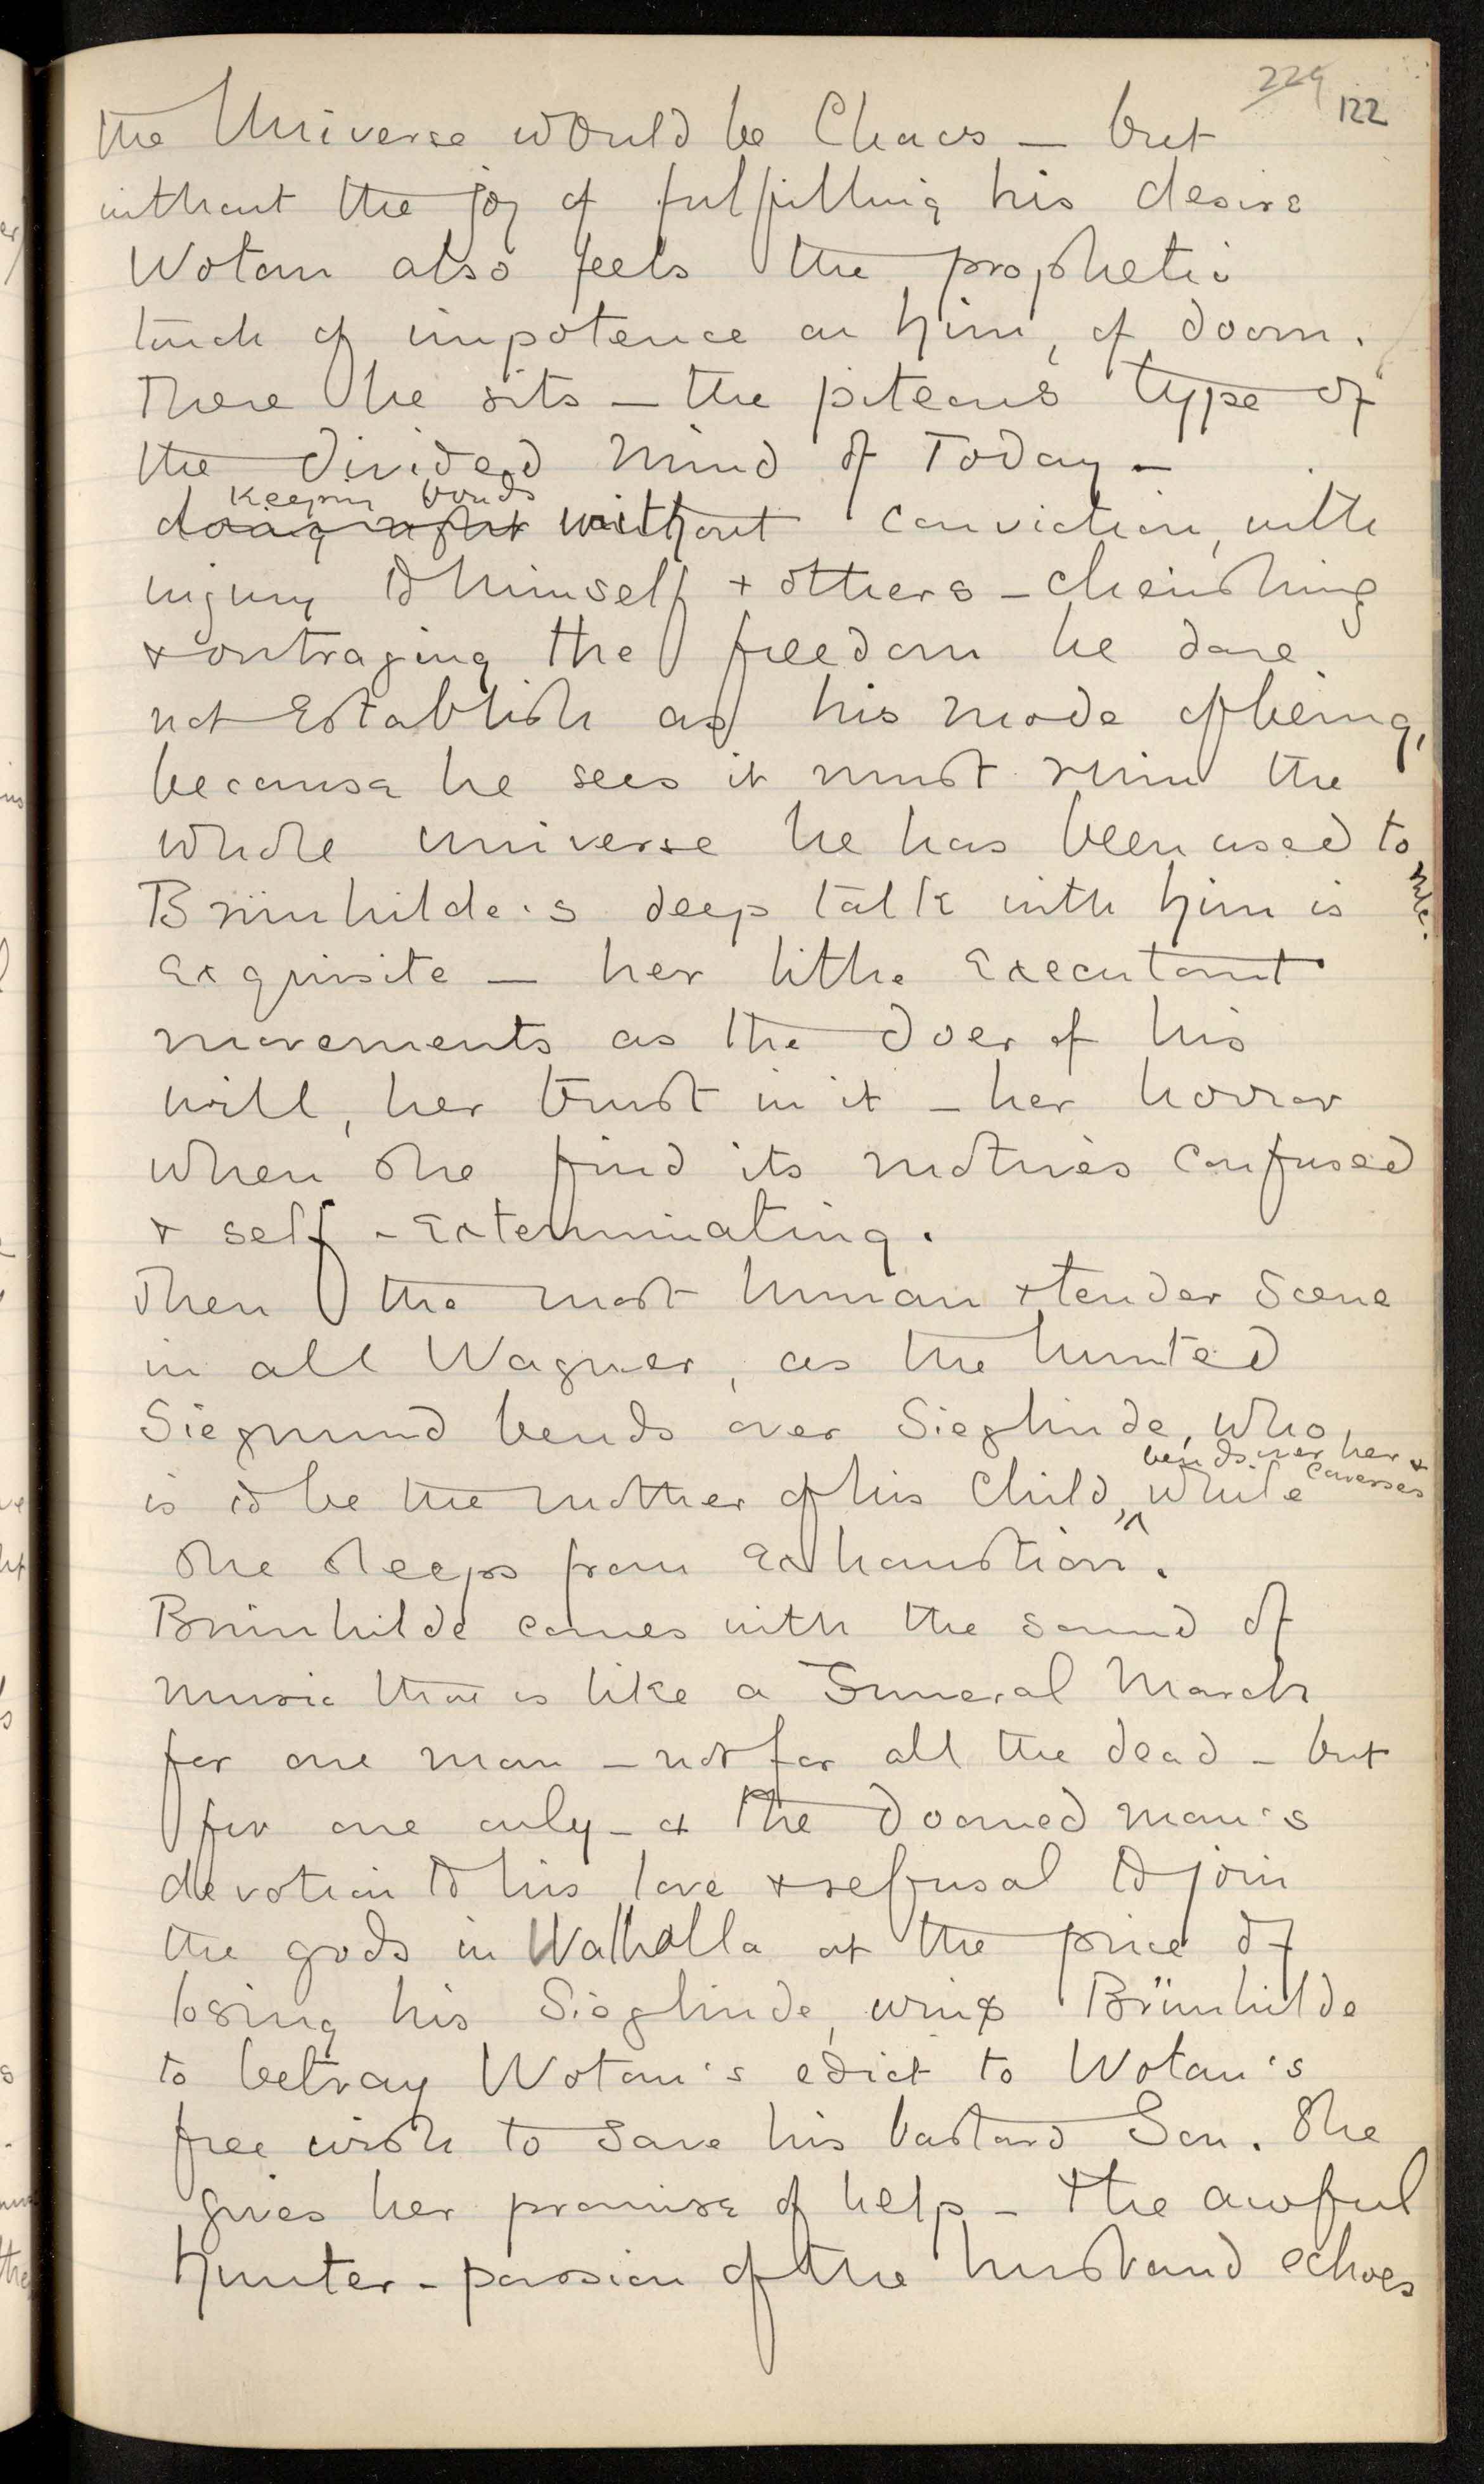 229 122
the Universe would be Chaos – but
without the joy of fulfilling his desire
Wotan also feels the prophetic
touch of impotence on him, of doom.
There he sits – the piteous type of
the divided mind of Today –
keeping bonds
doing right without conviction, with
injury to himself + others – cherishing
+ outraging the freedom he dare
not Establish as his mode of being,
because he sees it must ruin the
whole universe he has been used to
rule.
Brünhilde's deep talk with him is
exquisite – her lithe Executant
movements as the doer of his
will, her trust in it – her horror
when she find its motives confused
+ self-Exterminating.
Then the most human + tender Scene
in all Wagner, as the hunted
Siegmund bends over Sieglinde, who
bends over her +
caresses
is to be the mother of his Child, while
she sleeps from Exhaustion.
Brünhilde comes with the sound of
music that is like a Funeral March
for one man – not for all the dead – but
for one only – + the doomed man's
devotion to his love + refusal to join
the gods in Walhalla at the price of
losing his Sieglinde, wins Brünhilde
to betray Wotan's edict to Wotan's
free wish to save his bastard Son. She
gives her promise of help – + the awful
hunter-passion of the husband echoes